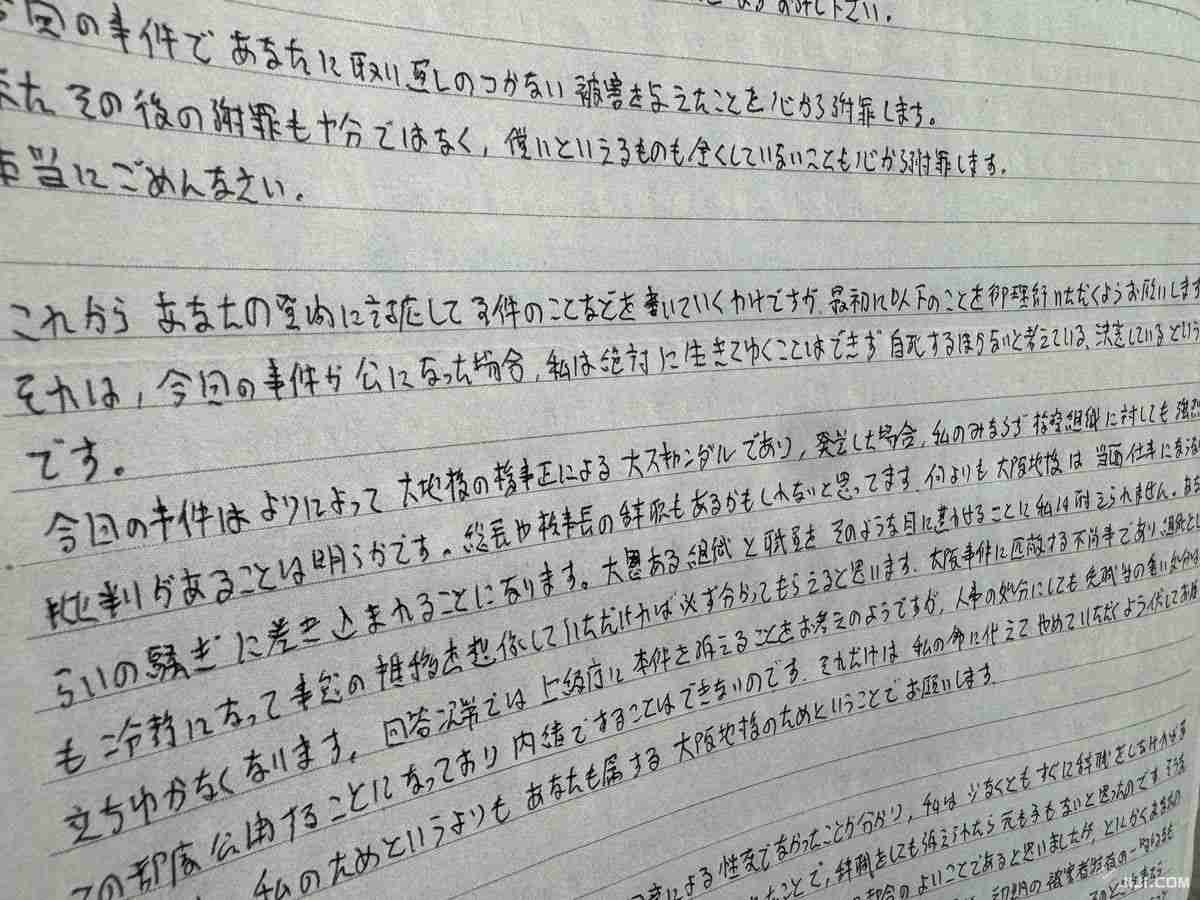 下さい。
回の事件であなたに取り返しのつかない被害を与えたことを心から謝罪します。
またその後の謝罪も十分ではなく，償いといえるものも全くしていないことも心から謝罪します。
本当にごめんなさい。
これから あなたの 対応して 事件のことなどを書いていくわけですが，最初に以下のことを御理解いただくようお願いします
それは，今回の事件が公になった場合，私は絶対に生きてゆくことはできず 自死するほかないと考えている，決意しているという
です。
今回の事件はよりによって 大地検の検事正による大スキャンダルであり，発覚した場合，私のみならず 検察組織に対しても強烈
批判があることは明らかです。総長や検事長の辞職もあるかもしれないと思ってます。何よりも 大阪地検は 当面仕事にならない
らいの騒ぎに巻き込まれることになります。大恩ある組織と職員を そのような目に遭わせることに私は耐えられません。あな
も冷静になって事態の推移を想像していただければ必ず分かってもらえると思います。大阪事件に匹敵する不祥事であり，組織と
立ちゆかなくなります。回答次第では 上級庁に 本件を訴えることをお考えのようですが，人事の処分にしても 免職 の重い処分は
この都度公開することになっており 内緒ですることはできないのです。それだけは 私の命に代えて やめていただくよう伏してお願
私のためというよりも あなたも属する 大阪地検のためということでお願いします。
による性交でなかったことが分かり，私は 少なくとも すぐに辞職をしなければ
たことで，辞職をしても訴えられたら 元も子もないと思ったのです
都合のよいことであると思いましたが，とにかくあなたの
初期の被害者特有の一時的
JIJI.COM